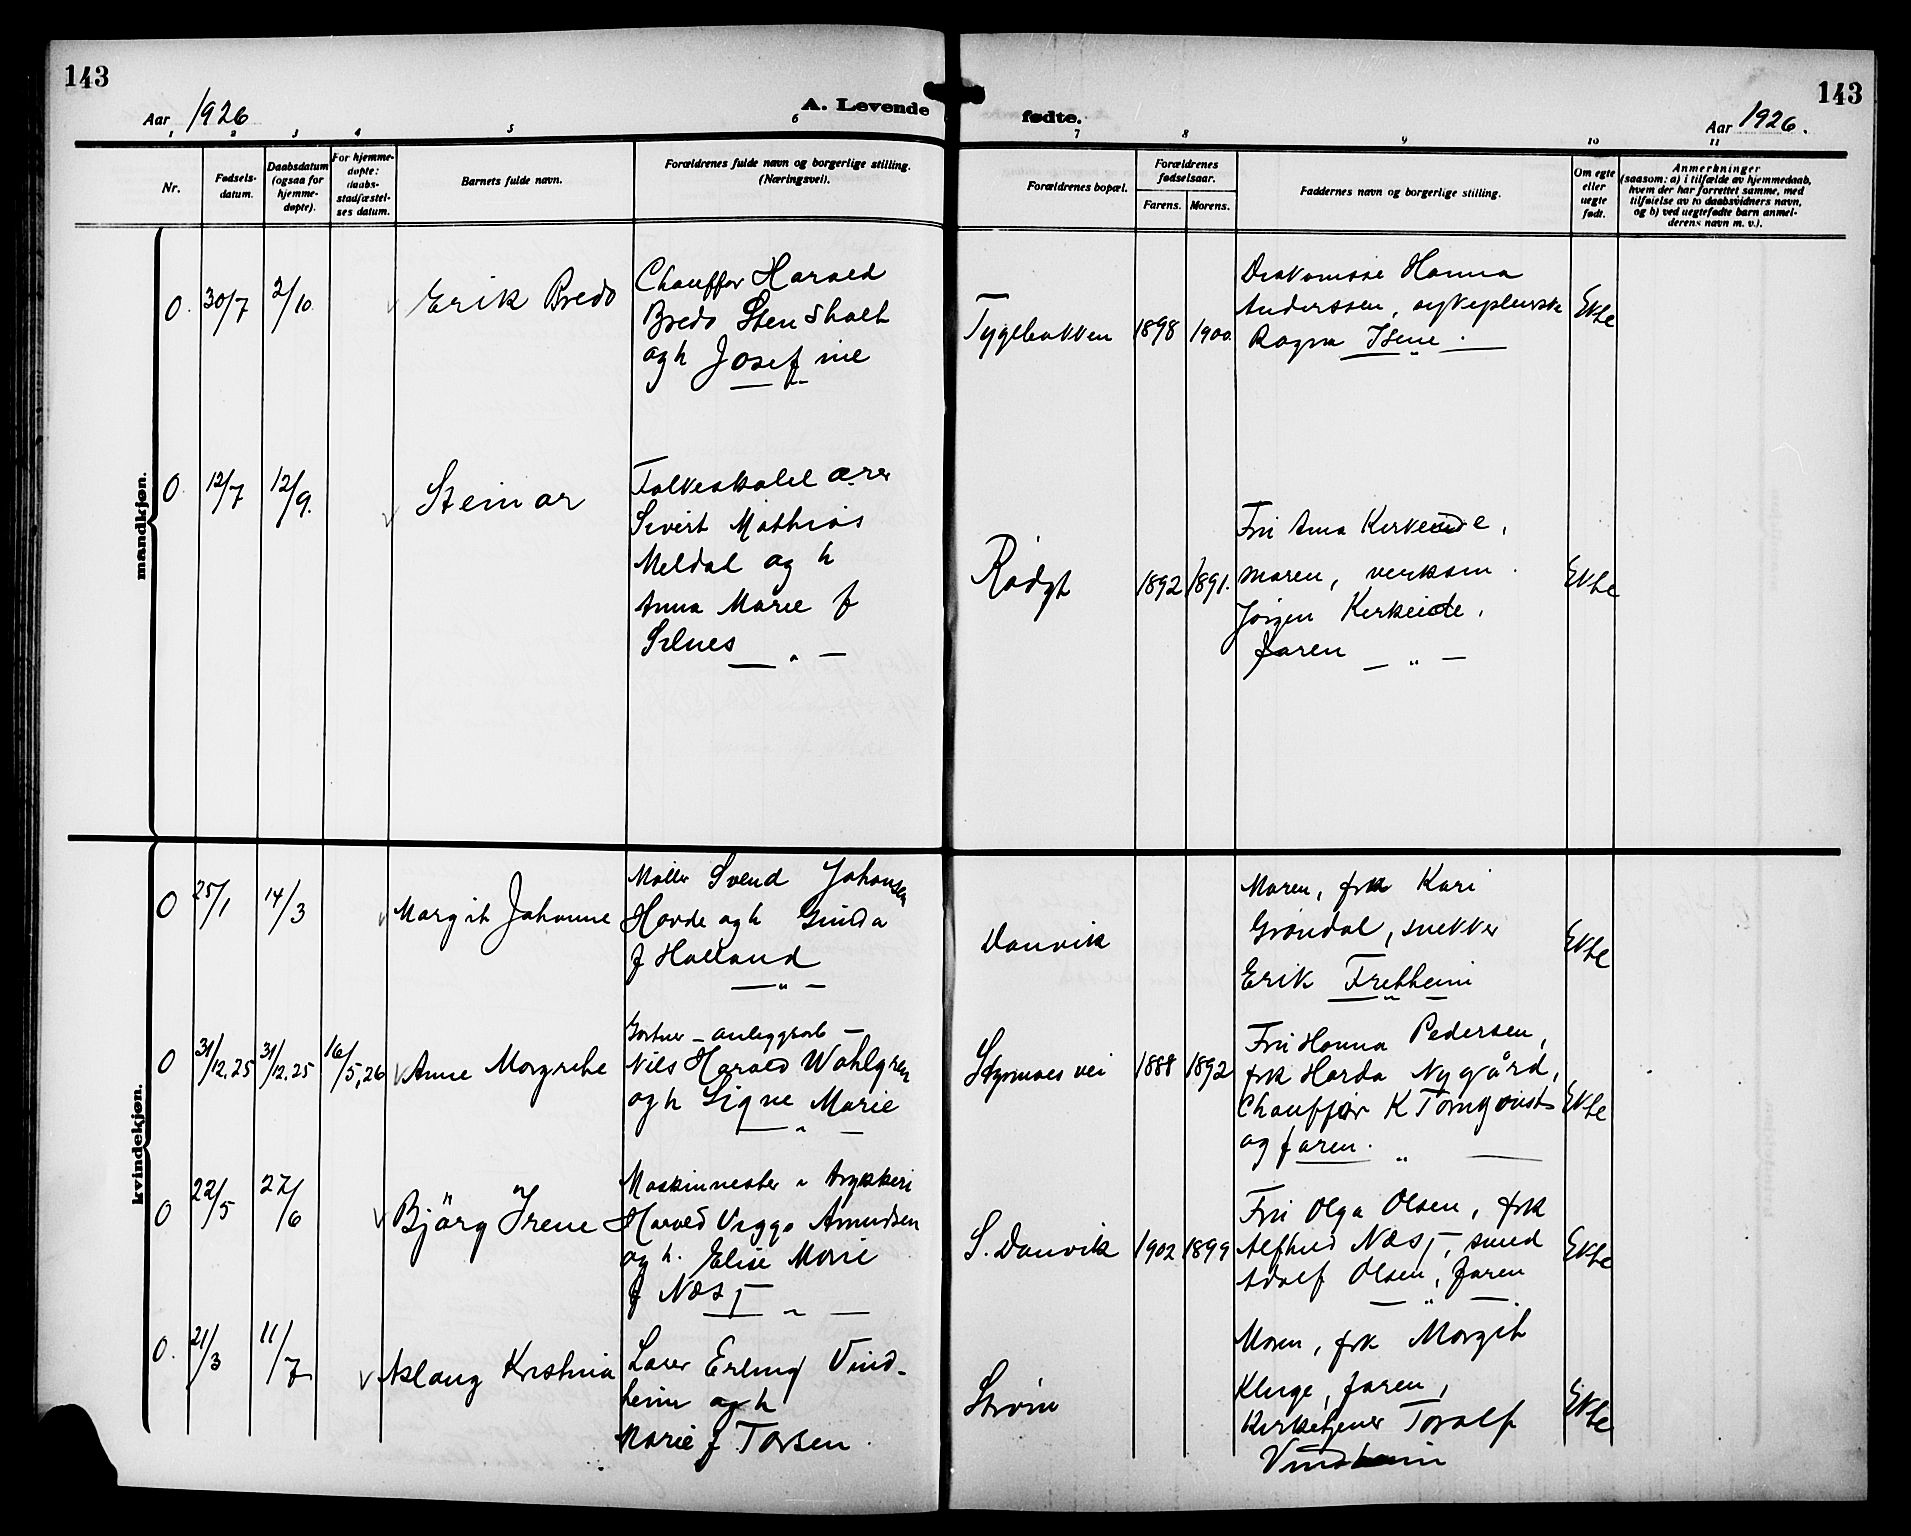 143
143
Aar 1926
A. Levende fødte.
Aar 1926.
1 2 3 4 5 6 7 8 9 10 11
Nr.
Fødsels-
datum.
Daabsdatum
(ogsaa for
hjemme-
døpte).
For hjemme-
døpte:
daabs-
stadfæstel-
ses datum.
Barnets fulde navn.
Forældrenes fulde navn og borgerlige stilling.
(Næringsvei).
Forældrenes bopæl.
Forældrenes
fødselsaar.
Farens. Morens.
Faddernes navn og borgerlige stilling.
Om egte
eller
uegte
født.
Anmerkninger
(saasom: a) i tilfælde av hjemmedaab,
hvem der har forrettet samme, med
tilføielse av to daabsvidners navn,
og b) ved uegtefødte barn anmel-
derens navn m. v.).
mandkjøn.
0. 30/7 2/10 Erik Bredo
Chauffør Harald
Bredo Stensholt
og h Josefine
Tyglbakken 1898 1900.
Diakonisse Hanna
Anderssen, sykepleierske
Ragna Isene.
Ekte
0. 12/7 12/9. Steinar
Folkeskolelærer
Sivert Mathias
Meldal og h
Anna Marie f
Silnes
Rødgt 1892 1891.
Fru Anna Kirkeide,
moren, verksm.
Jörgen Kirkeide,
faren
Ekte
kvindekjøn.
0 25/1 14/3 Margit Johanne
Møller Svend Johansen
Hovde og h Gunda
f Holland
Danvik
Moren, frk Kari
Grøndal, snekker
Erik Fretheim
Ekte
0 31/12.25 31/12.25 16/5,26 Anne Margrethe
Gartner - anleggsarb -
Nils Harald Wahlgren
og h Signe Marie
vei 1888 1892
Fru Hanna Pedersen,
frk Harda Nygård,
Chauffør K Tornqvist
og faren.
Ekte
0 22/5 27/6 Björg Irene
Maskinmester i trykkeri
Harald Viggo Amundsen
og h. Elise Marie
f Næss
S. Danvik 1902 1899
Fru Olga Olsen, frk
Alfhild Næss, smed
Adolf Olsen, faren
Ekte
0. 21/3 11/7 Aslaug Kristina
Lærer Erling Vind-
heim og h
Marie f Torsen.
Strøm
Moren, frk Margit
Kluge, faren,
Kirketjener Toralf
Vindheim
Ekte